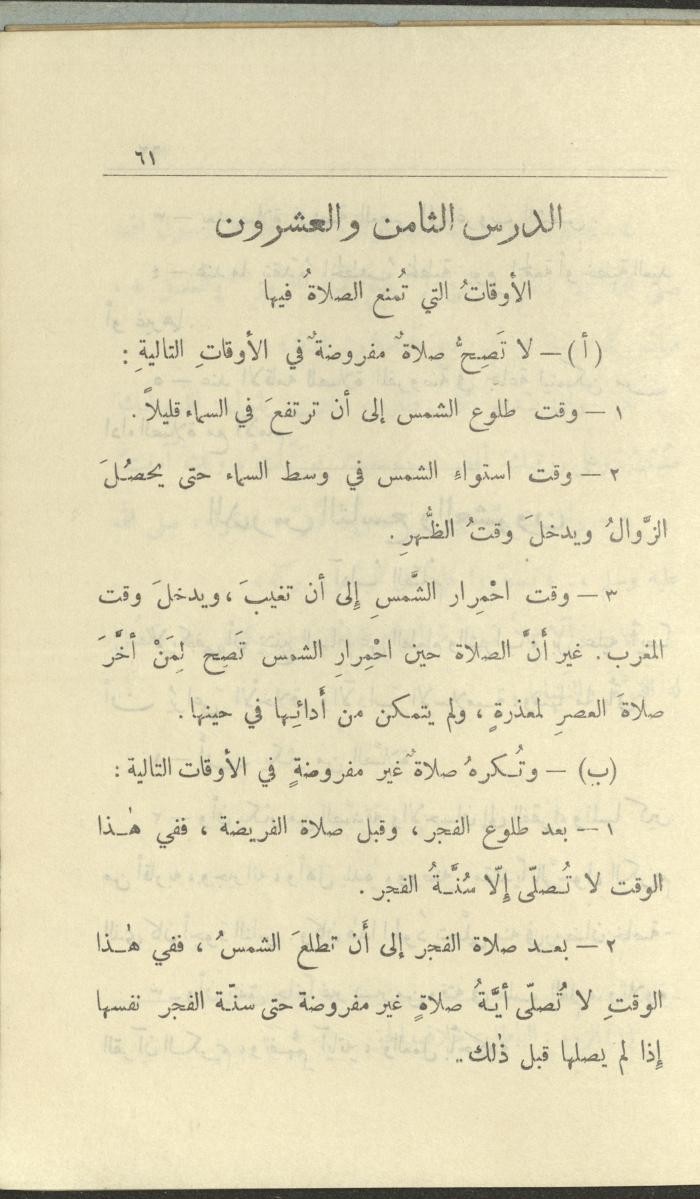 ٦١
الدرس الثامن والعشرون
الأوقاتُ التي تُمنع الصلاةُ فيها
(أ) – لا تَصِحُّ صلاةٌ مفروضةٌ في الأوقاتِ التاليةِ :
١ – وقت طلوع الشمس إلى أن ترتفعَ في السماء قليلاً .
٢ – وقت استواءِ الشمس في وسط السماء حتى يحصُـلَ
الزَّوالُ ويدخلَ وقتُ الظُّـهرِ .
٣ – وقت احْمِرار الشَّمسِ إِلى أن تغيبَ ، ويدخلَ وقت
المغرب . غير أَنَّ الصلاة حين احْمِرارِ الشمس تَصِح لِمَنْ أخَّرَ
صلاةَ العصرِ لمعذرةٍ ، ولم يتمكن من أَدائِـها في حينها .
(ب) – وتُـكرهُ صلاةٌ غير مفروضةٍ في الأوقات التالية :
١ – بعد طلوع الفجر ، وقبل صلاة الفريضة ، ففي هٰـذا
الوقت لا تُـصلّى إِلّا سُنَّـةُ الفجر .
٢ – بعـد صلاة الفجر إلى أَن تطلعَ الشمسُ ، ففي هٰـذا
الوقتِ لا تُصلّى أيَّـةُ صلاةٍ غير مفروضة حتى سنّـة الفجر نفسها
إِذا لم يصلها قبل ذٰلك ..